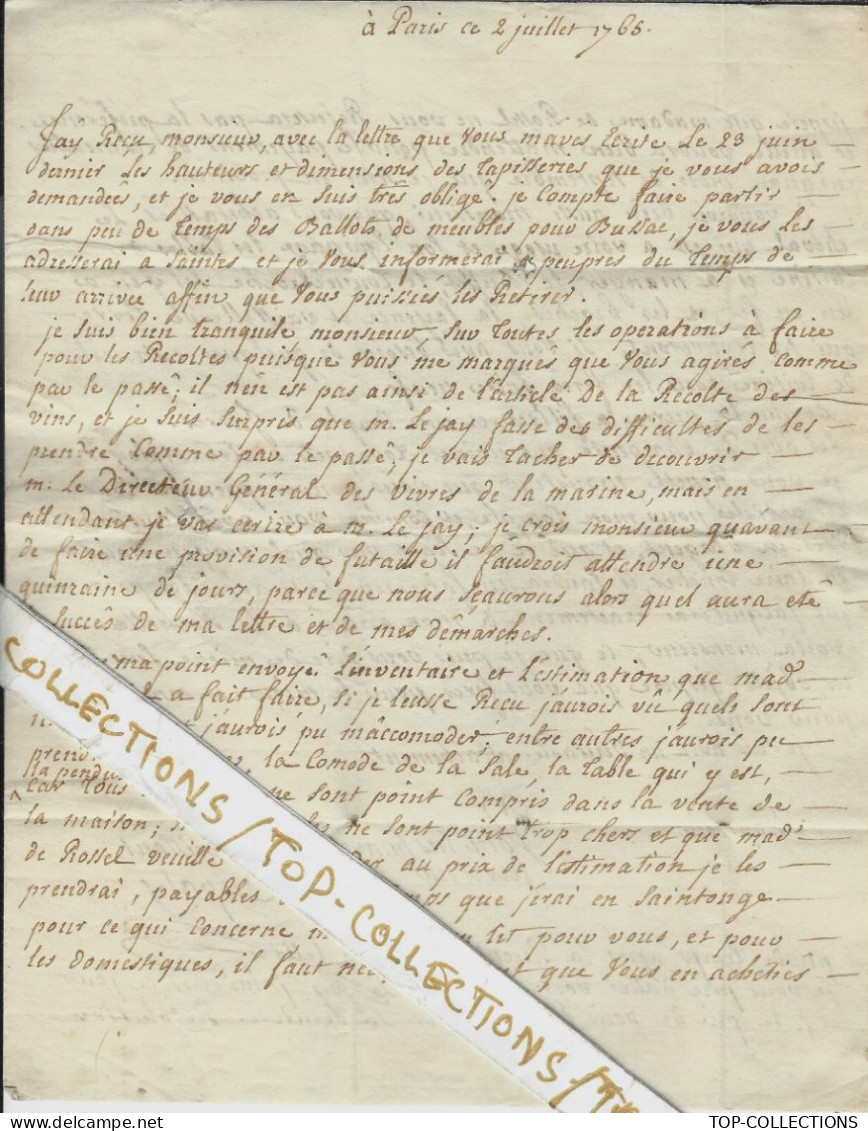 à Paris ce 2 juillet 1765.
J'ay Reçu, monsieur, avec la lettre que vous m'avés Ecrite Le 23 juin
dernier Les hauteurs et dimensions des Tapisseries que je vous avois
demandeês, et je vous en suis três obligê. je Compte faire partir
dans peu de Temps des Ballots de meubles pour Bussac, je vous les
adresserai a Saintes et je vous informerai a peuprês du Temps de
leur arriveê affin que vous puissiés les Retirer.
je suis bien tranquile, monsieur, sur Toutes les operations à faire
pour les Recoltes puisque vous me marqués que vous agirés comme
par le passê; il n'en est pas ainsi de l'article De la Recolte des
vins, et je suis surpris que m. Le jay fasse des difficultês de les
prendre Comme par le passê, je vais Tacher de decouvrir
m. Le Directeur Général des vivres de la marine, mais en
attendant je vas ecrire à m. Le jay; je crois monsieur qu'avant
de faire une provision de futaille il faudroit attendre une
quinzaine de jours, parce que nous sçaurons alors quel aura etê
succês de ma lettre et de mes dêmarches.
ma point envoyê L'inventaire et L'estimation que mad.
a fait faire, si je l'eusse Reçu j'aurois vû quels sont
j'aurois pu m'accomoder; entre autres j'aurois pu
prend la Comode de la Sale, la Table qui y est,
la pendu
car Tous ne sont point Compris dans la vente de
la maison; ne sont point trop chers et que mad.
de Rossel veuille au prix de l'estimation je les
prendrai, payables que j'irai en Saintonge
pour ce qui concerne lit pour vous, et pour
les domestiques, il faut que vous en achetiés
COLLECTIONS / TOP-COLLECTIONS / TOP
TOP-COLLECTIONS